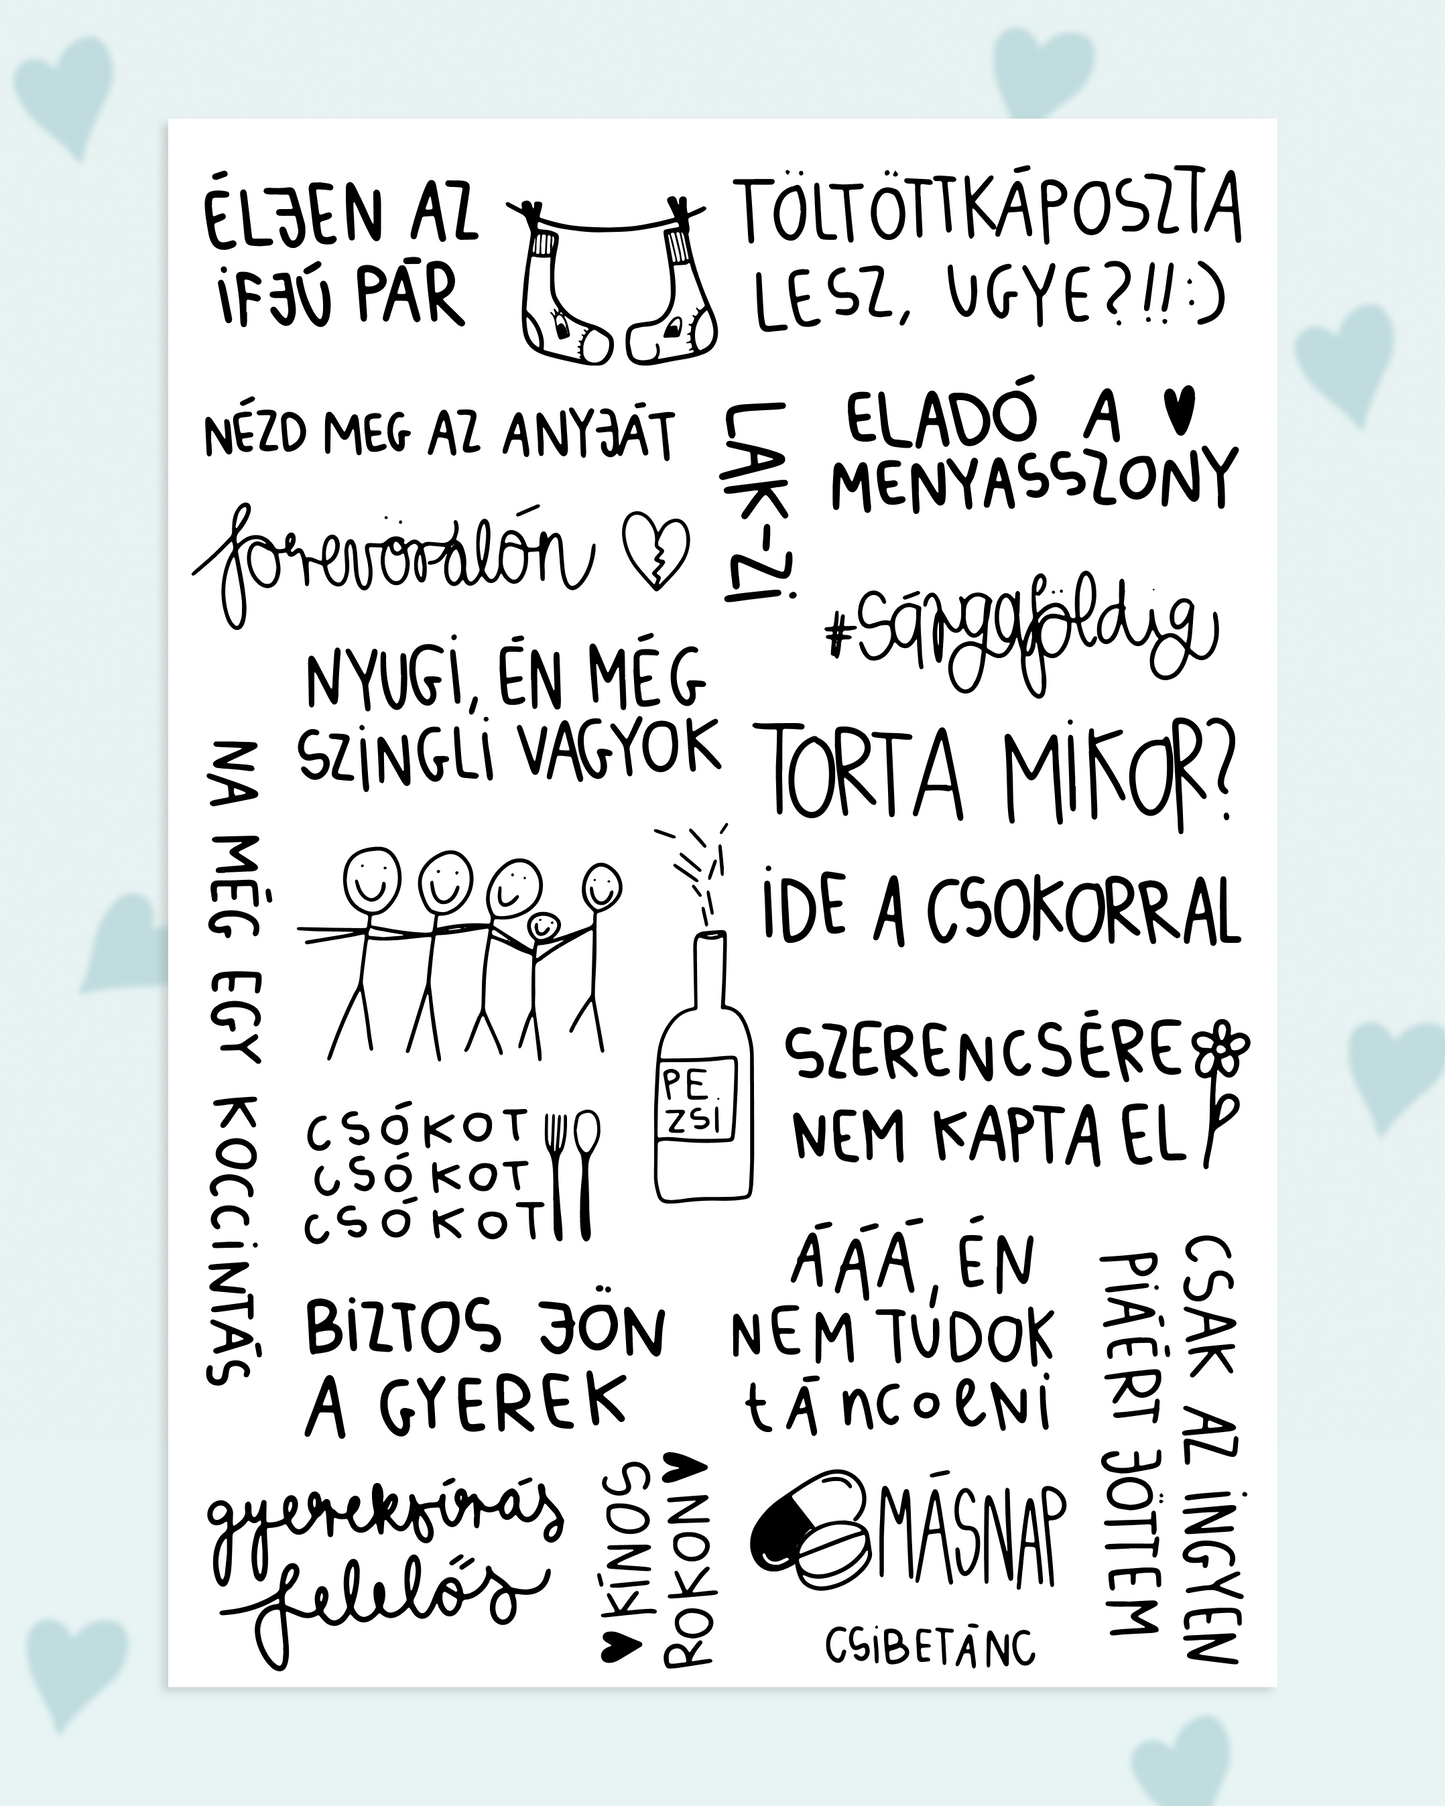 ÉLJEN AZ
IFJÚ PÁR
TÖLTÖTTKÁPOSZTA
LESZ, UGYE?!!:)
NÉZD MEG AZ ANYJÁT
LAK-ZI
ELADÓ A
MENYASSZONY
forevöralón
#sárgaföldig
NYUGI, ÉN MÉG
SZINGLI VAGYOK
TORTA MIKOR?
NA MÉG EGY KOCCINTÁS
IDE A CSOKORRAL
PE
ZSI
SZERENCSÉRE
NEM KAPTA EL
CSÓKOT
CSÓKOT
CSÓKOT
ÁÁÁ, ÉN
NEM TUDOK
tÁncolNi
CSAK AZ INGYEN
PIÁÉRT JÖTTEM
BIZTOS JÖN
A GYEREK
gyereksírás
felelős
KÍNOS
ROKON
MÁSNAP
CSIBETÁNC